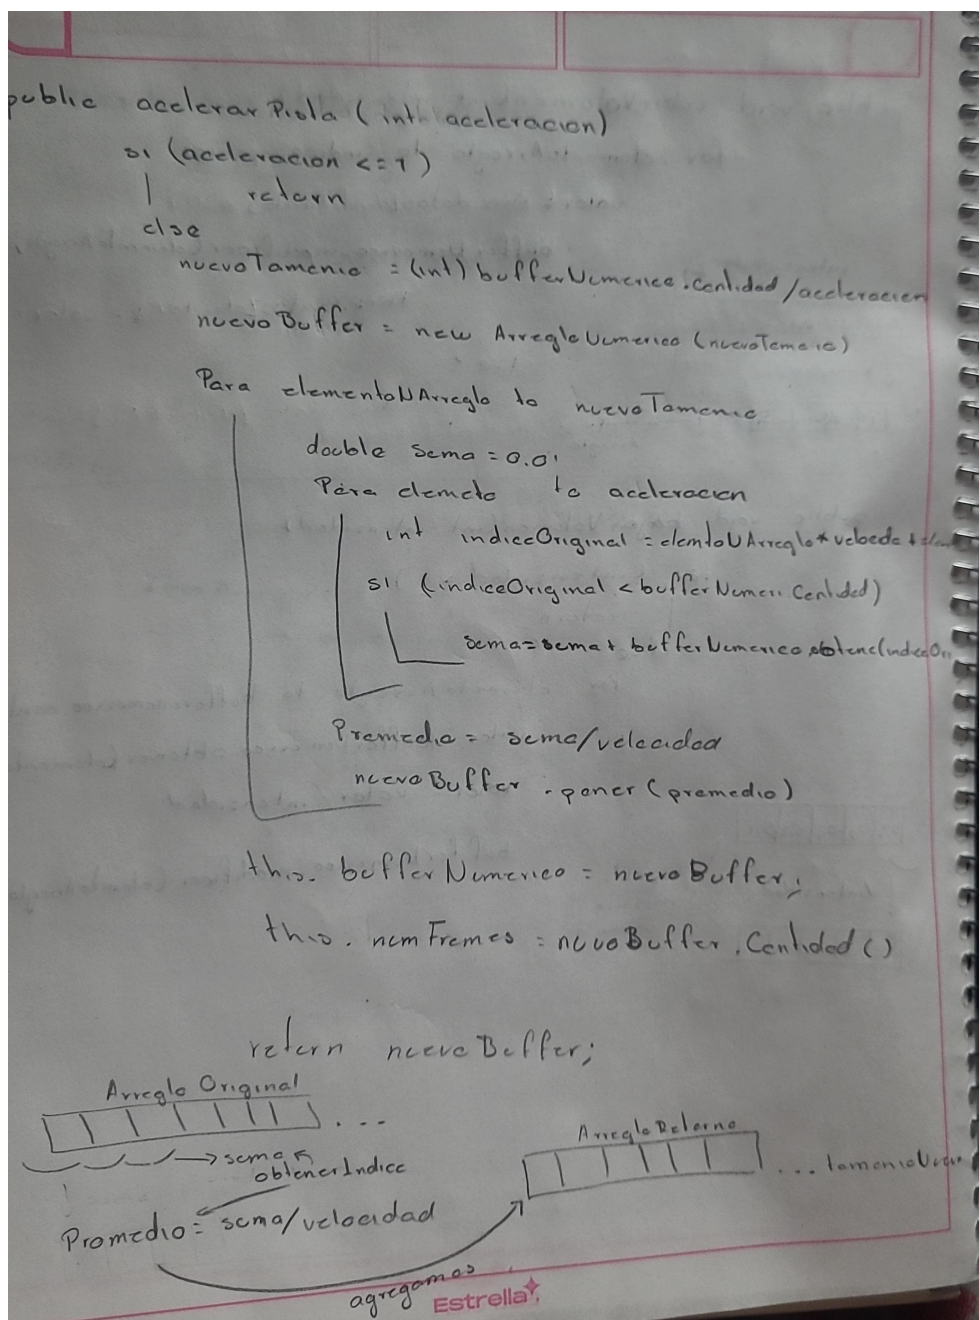 public acelerar Pista (int aceleracion)
si (aceleracion <= 1)
return
else
nuevoTamanio = (int) bufferNumerico.cantidad/aceleracion
nuevo Buffer = new ArregloNumerico (nuevoTamanio)
Para elementoNArreglo to nuevoTamanio
double suma = 0.0;
Para elemeto to aceleracion
int indiceOriginal = elemtoNArreglo *
si (indiceOriginal < bufferNumeri. Cantidad)
suma = suma + bufferNumerico.obtene(indiceOri
Promedio = suma/velocidad
nuevoBuffer .poner (promedio)
this. bufferNumerico = nuevoBuffer;
this. numFrames = nuvoBuffer .Cantidad ()
return nuevoBuffer;
Arreglo Original
. . .
suma
obtenerIndice
Arreglo Retorno
. . .
Promedio = suma/velocidad
agregamos
Estrella